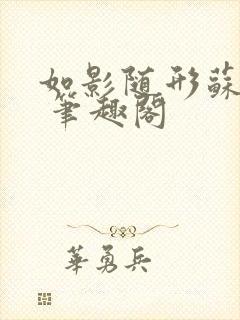 如影随形蘇
筆趣閣
華勇兵